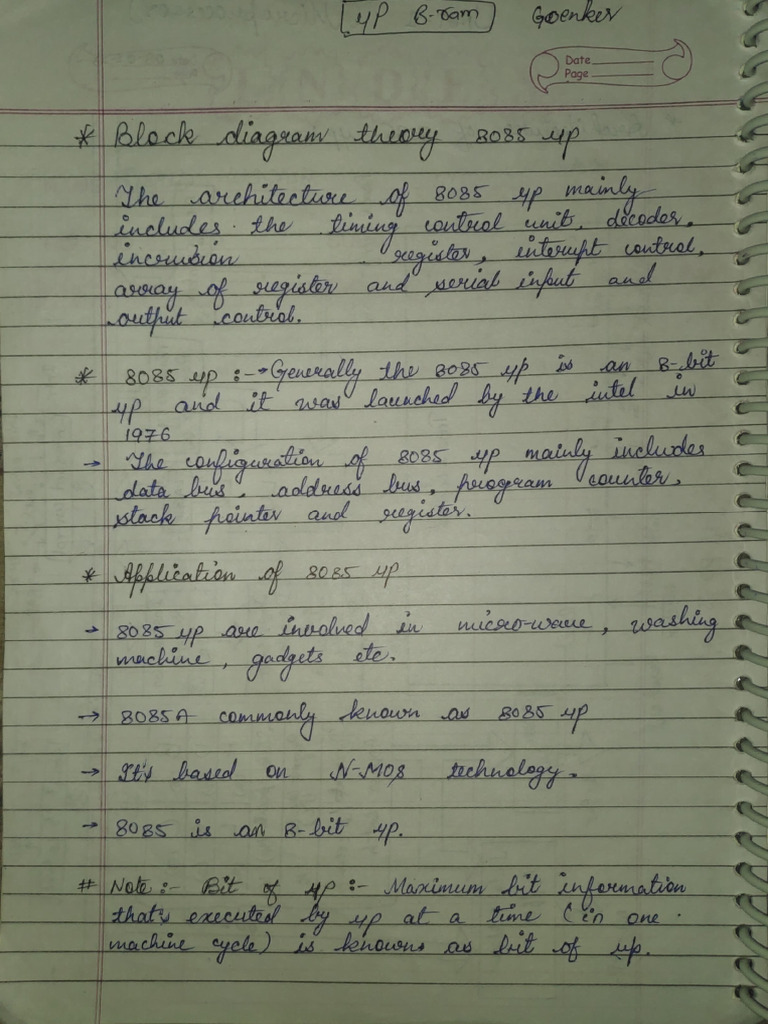 μP B-ram Goenker
Date
Page
* Block diagram theory 8085 μP
The architecture of 8085 μP mainly
includes the timing control unit, decoder,
register, interupt control,
array of register and serial input and
output control.
* 8085 μP :-→ Generally the 8085 μP is an 8-bit
μP and it was launched by the intel in
1976
→ The configuration of 8085 μP mainly includes
data bus, address bus, program counter,
stack pointer and register.
* Application of 8085 μP
→ 8085 μP are involved in micro-wave, washing
machine, gadgets etc.
→ 8085A commonly known as 8085 μP
→ It's based on N-MOS technology.
→ 8085 is an 8-bit μP.
# Note :- Bit of μP :- Maximum bit information
that's executed by μP at a time (in one
machine cycle) is known as bit of μp.